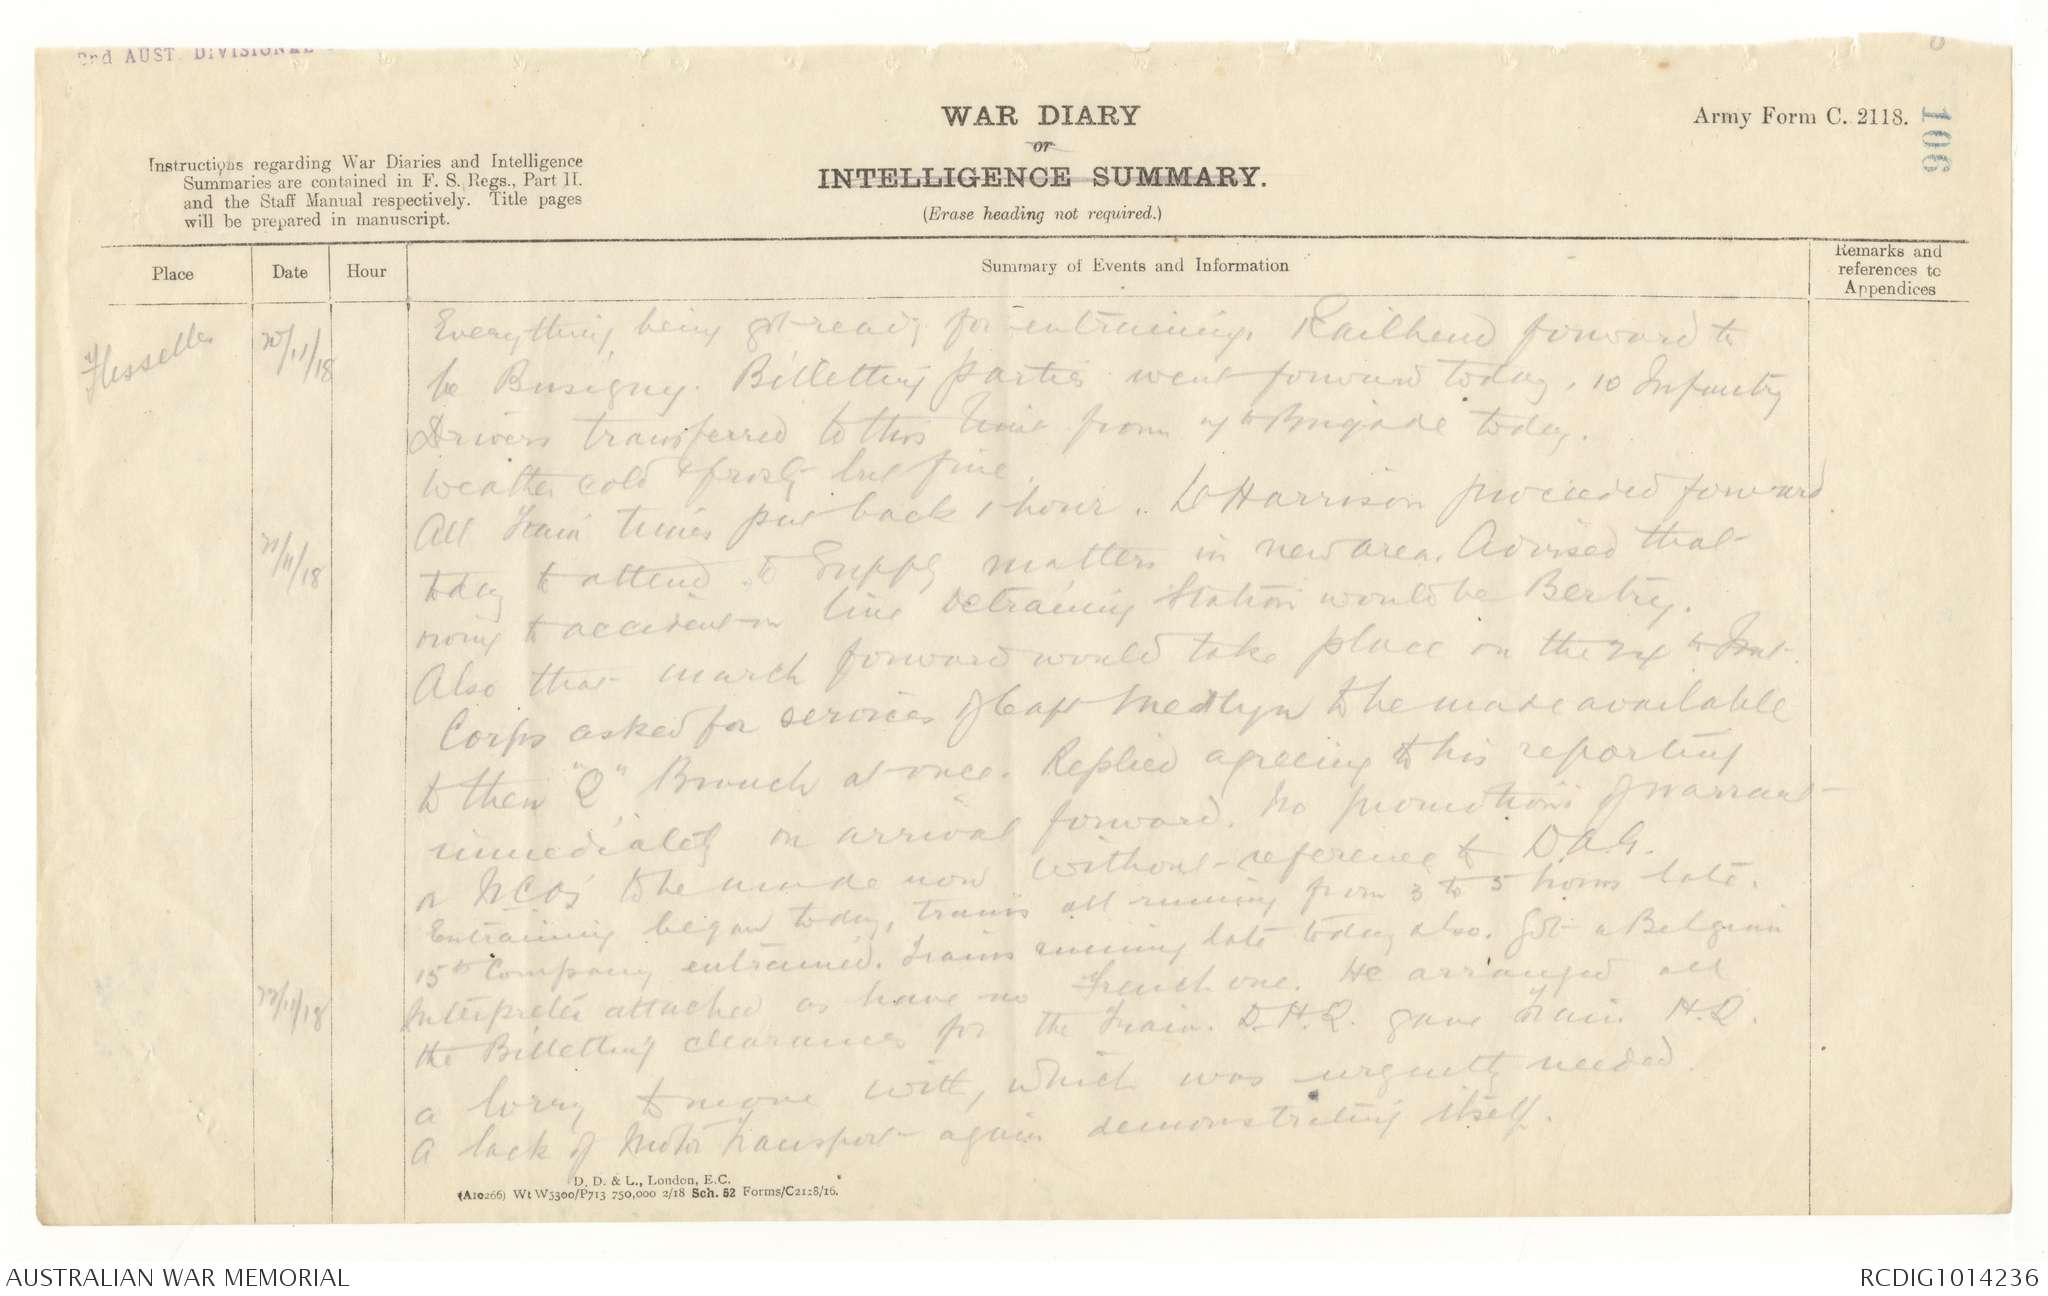 2nd AUST. DIVISIONAL
WAR DIARY
or
INTELLIGENCE SUMMARY.
(Erase heading not required.)
Army Form C. 2118.
106
Instructions regarding War Diaries and Intelligence
Summaries are contained in F. S. Regs., Part II.
and the Staff Manual respectively. Title pages
will be prepared in manuscript.
Place
Date
Hour
Summary of Events and Information
Remarks and
references to
Appendices
Flesselles
20/11/18
Everything being got ready for entraining. Railhead forward to
be Busigny. Billetting parties went forward today. 10 Infantry
Drivers transferred to this from Brigade today.
Weather cold & frosty but fine.
21/11/18
All train times put back 1 hour. Lt Harrison proceeded forward
today to attend to Supply matters in new area. Advised that
owing to accident on line Detraining Station would be Bertry.
Also that march forward would take place on the Inst.
Corps asked for services of Capt Medlyn to be made available
to then "Q" Branch at once. Replied agreeing to his reporting
immediately on arrival forward. No promotions of Warrant
or NCOs to be made now without reference to D.A.G.
Entraining began today, trains all running from 3 to 5 hours late.
22/11/18
15th Company entrained. Trains running late today also. Got a Belgian
Interpreter attached as have no French one. He arranged all
the Billetting clearances for the Train. D.H.Q. gave Train H.Q.
a lorry to move with, which was urgently needed.
A lack of Motor Transport again demonstrating itself.
D. D. & L., London, E.C.
(A10266) Wt W5300/P713 750,000 2/18 Sch. 52 Forms/C2118/16.
AUSTRALIAN WAR MEMORIAL
RCDIG1014236